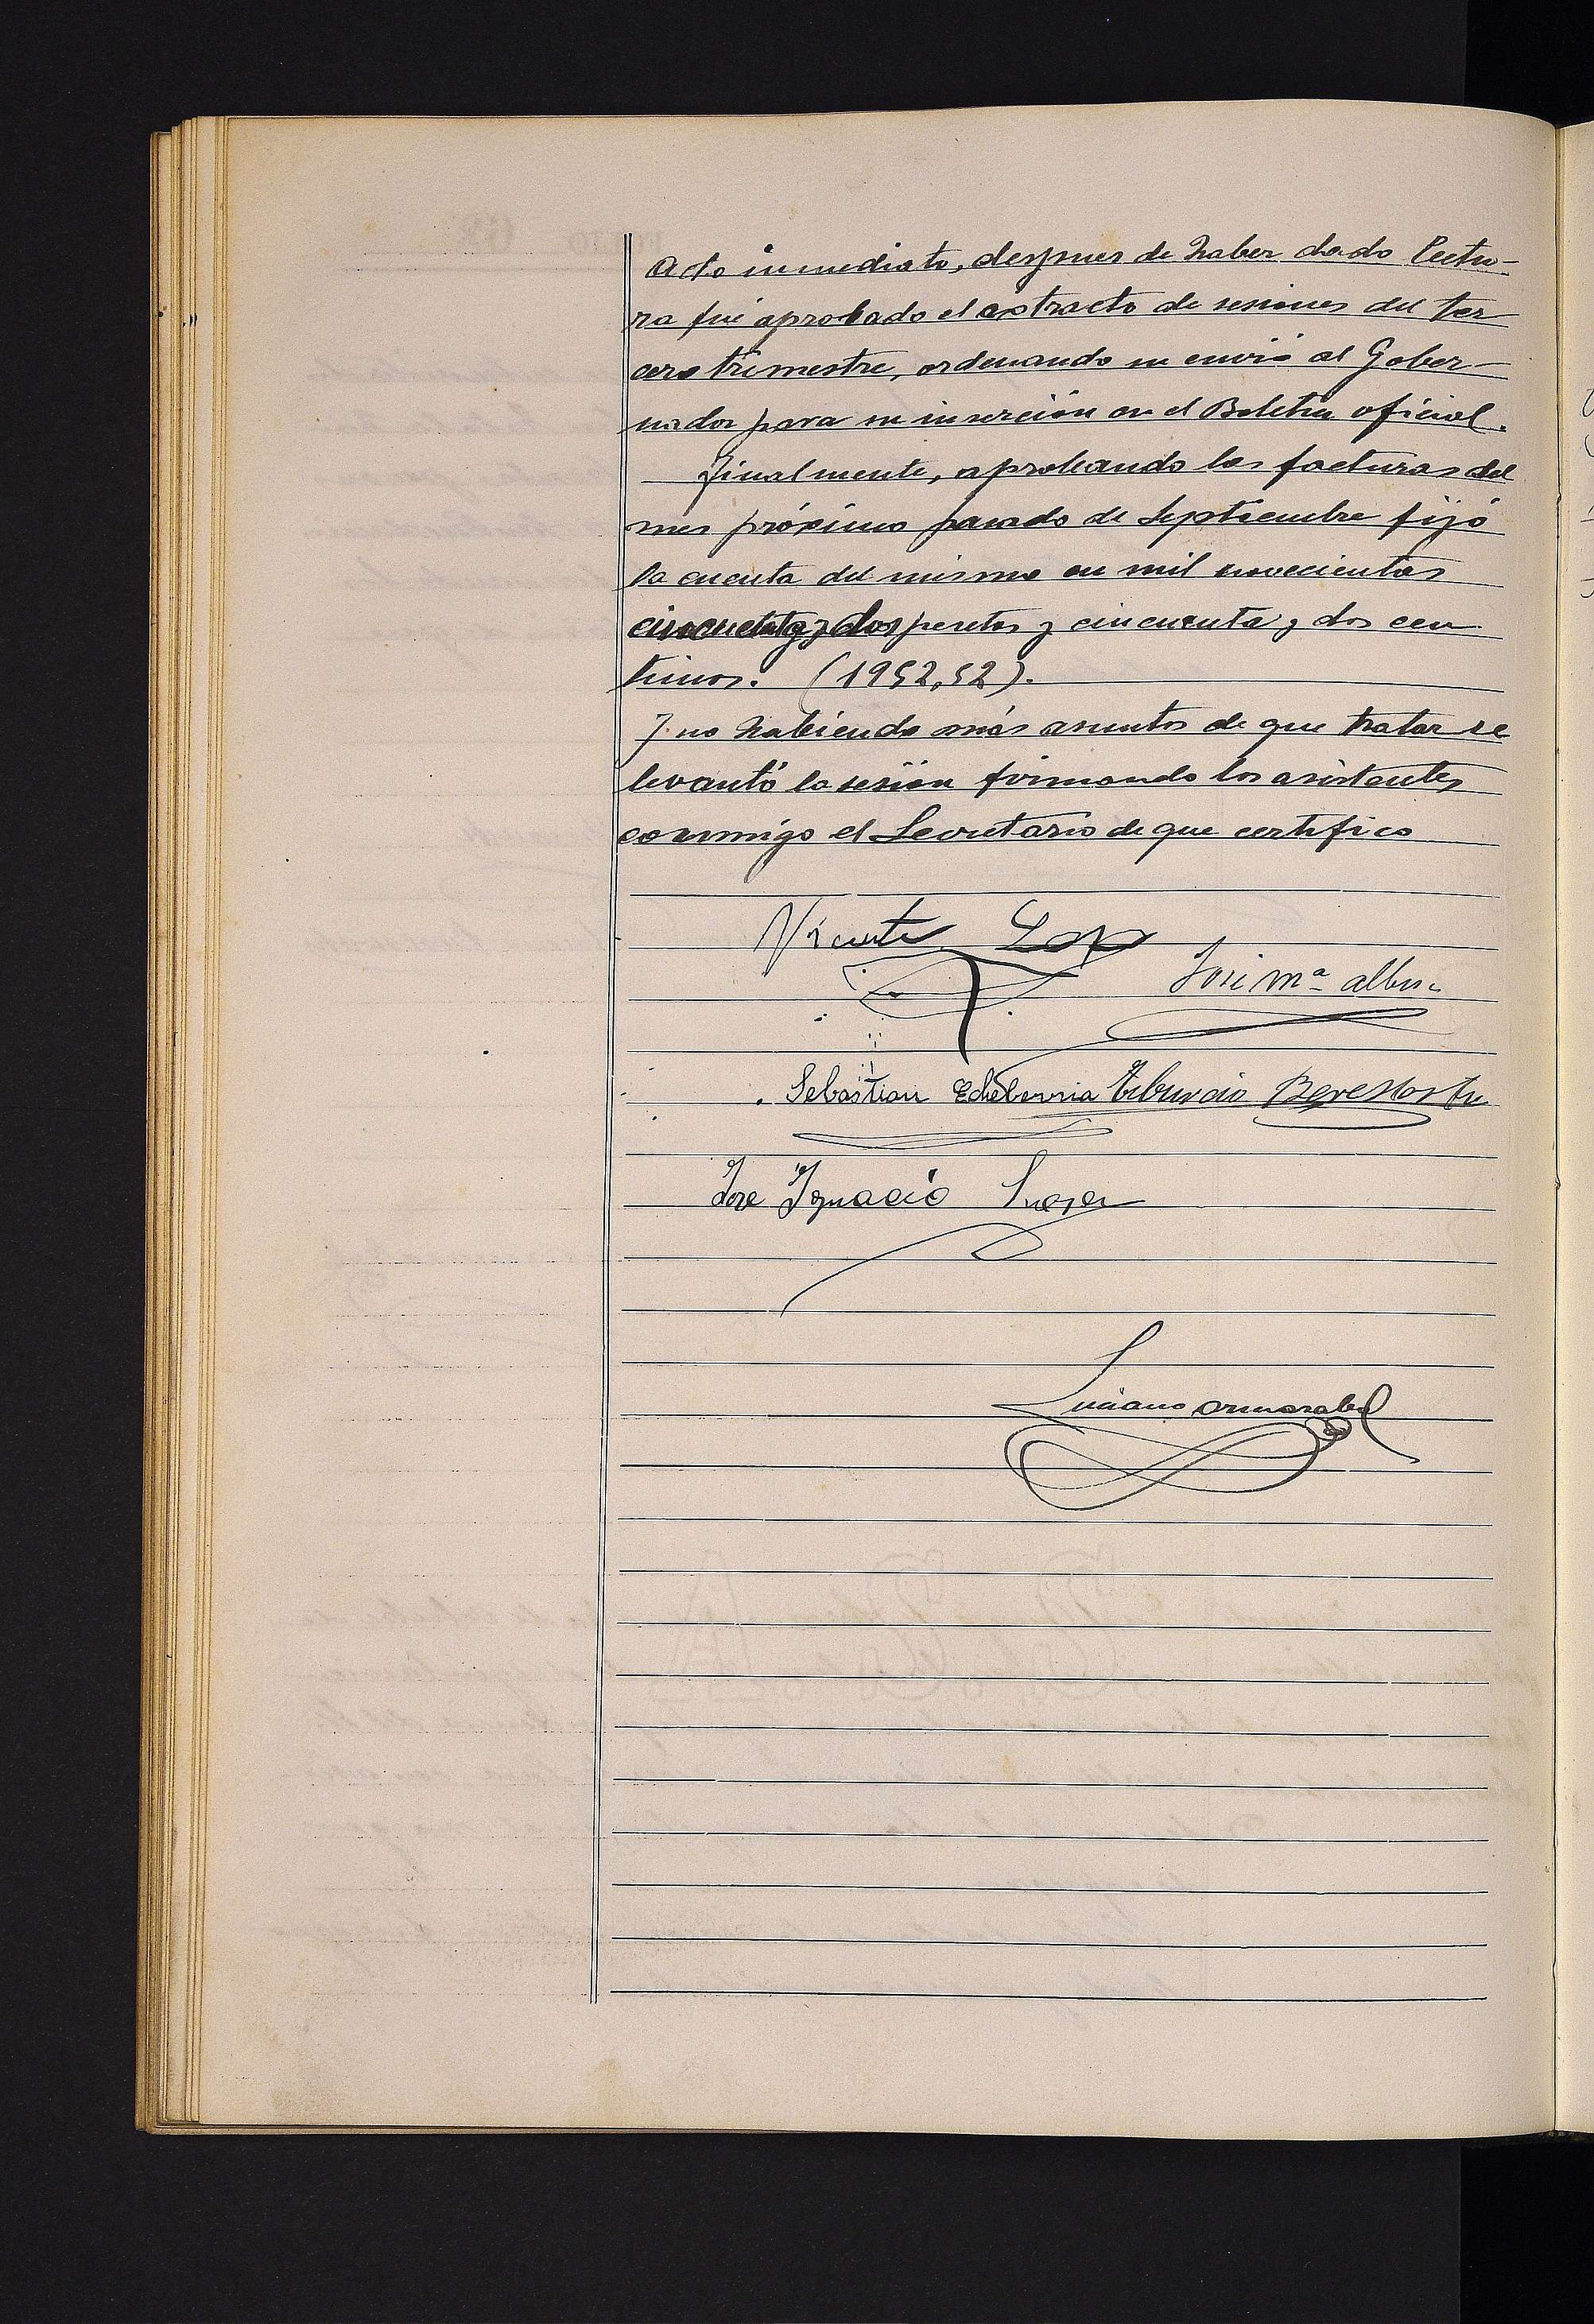 Acto inmediato, despues de haber dado lectu-
ra fué aprobado el extracto de sesiones del ter
cero trimestre, ordenando su envio al Gober-
nador para su inserción en el Boletin oficial.
Finalmente, aprobando las facturas del
mes próximo pasado de Septiembre fijó
la cuenta del mismo en mil novecientas
cincuenta y dos pesetas y cincuenta y dos cen
timos. (1952,52).
Y no habiendo más asuntos de que tratar se
levantó la sesión firmando los asistentes
conmigo el Secretario de que certifico
Vicente
José Mª
Sebastian Echeberria Tiburcio
Jose Ignacio
Luciano